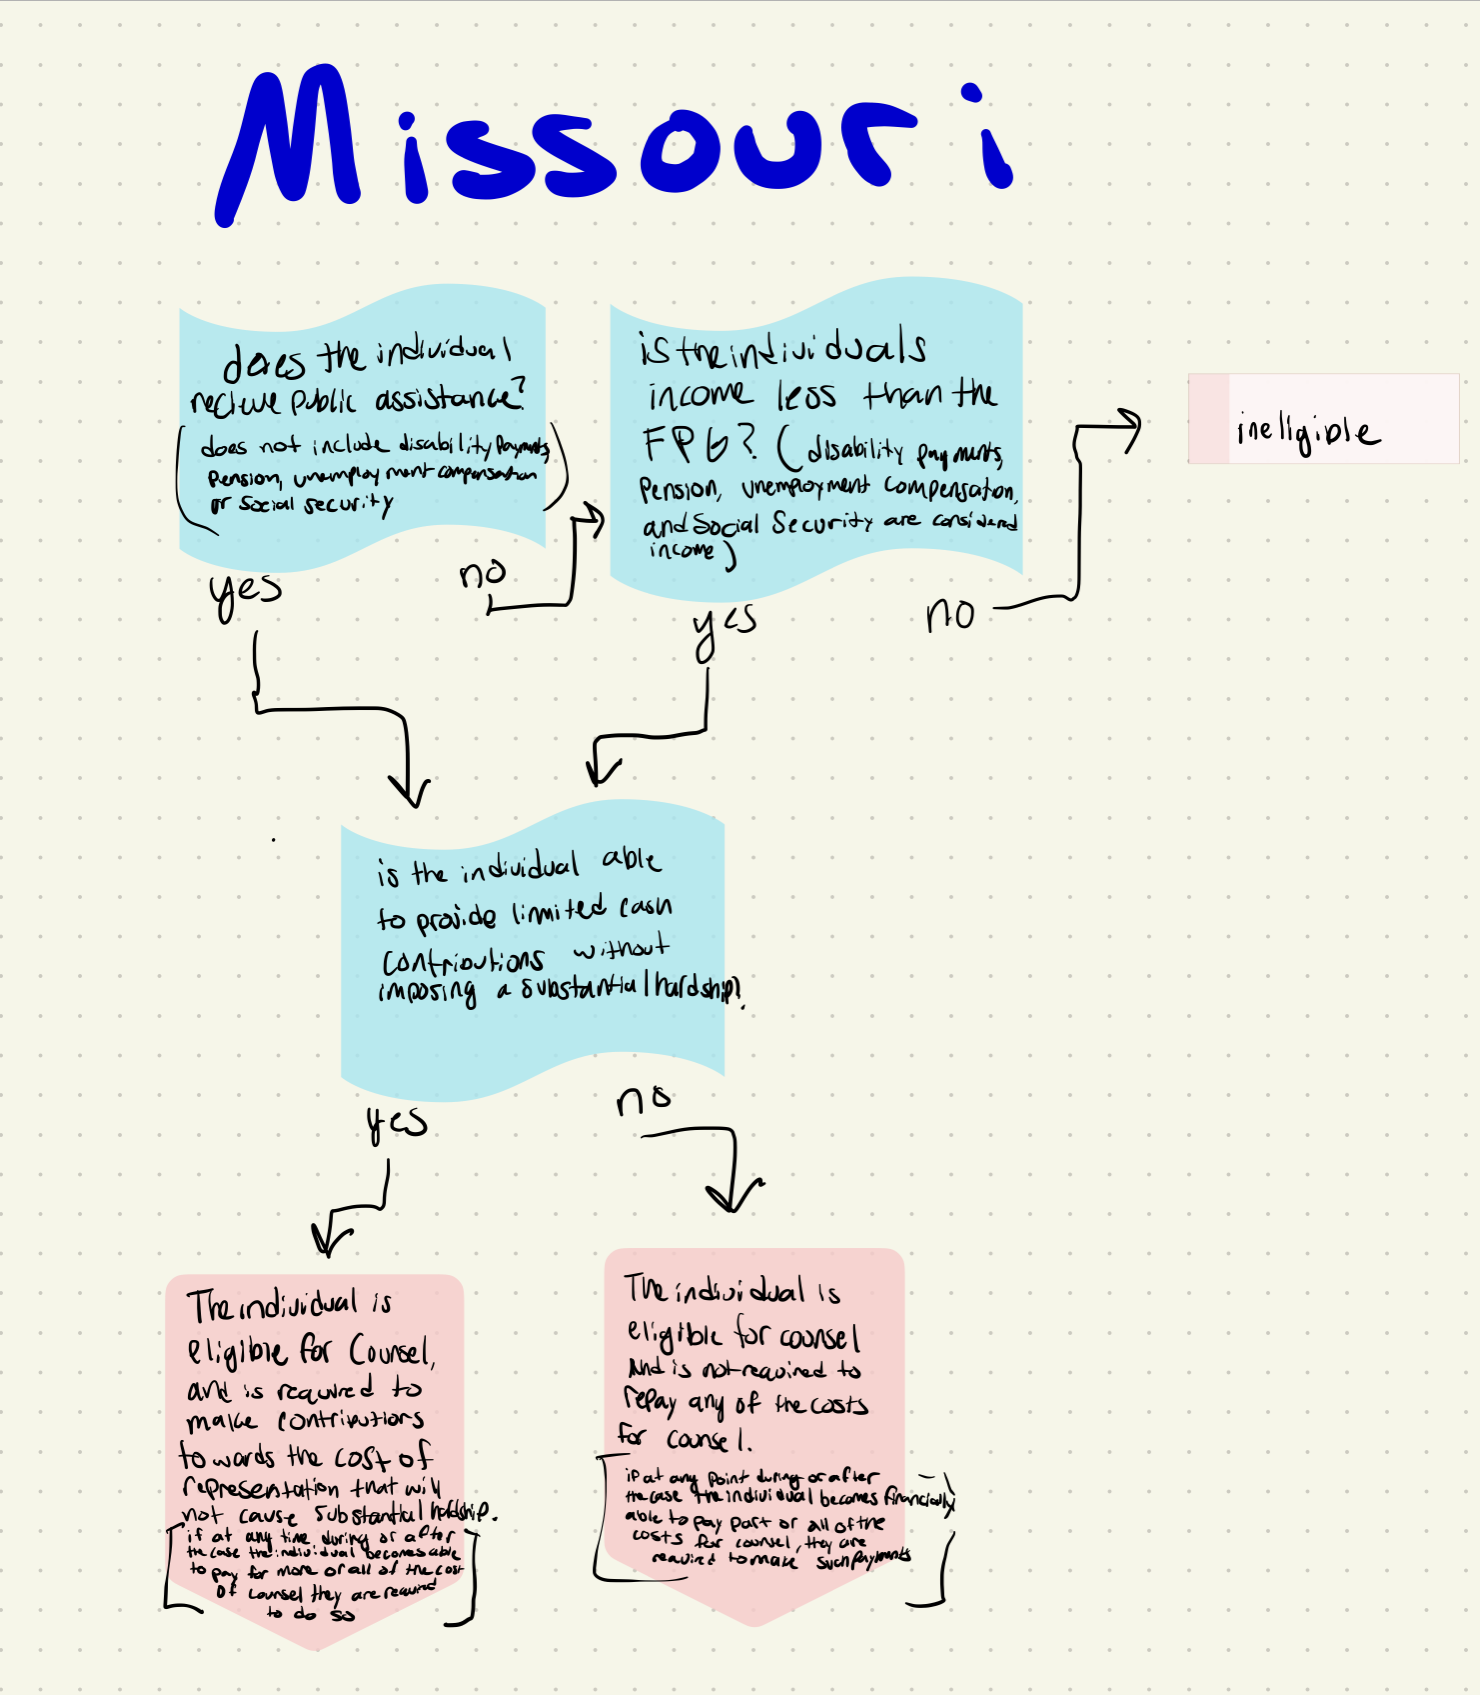 Missouri
does the individual
recieve public assistance?
(does not include disability payments,
pension, unemployment compensation
or social security)
yes
no
is the individuals
income less than the
FPG? (disability payments,
pension, unemployment compensation,
and Social Security are considered
income)
yes
no
ineligible
is the individual able
to provide limited cash
contributions without
imposing a substantial hardship?
yes
no
The individual is
eligible for Counsel,
and is required to
make contributions
towards the cost of
representation that will
not cause substantial hardship.
[if at any time during or after
the case the individual becomes able
to pay for more or all of the cost
of counsel they are required
to do so]
The individual is
eligible for counsel
And is not required to
repay any of the costs
for counsel.
[if at any point during or after
the case the individual becomes financially
able to pay part or all of the
costs for counsel, they are
required to make such payments]